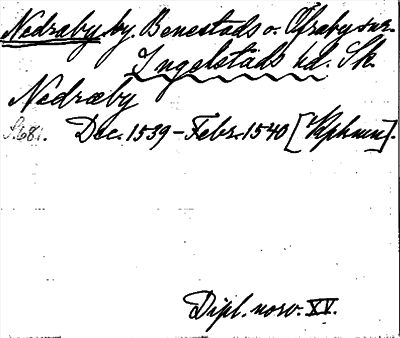 Nedraby by. Benestads o. Öfraby snr.
Ingelstads hd. Sk.
Nedræby
S.681. Dec. 1539 - Febr. 1540 [Kphmn].
Dipl. norv. XV.